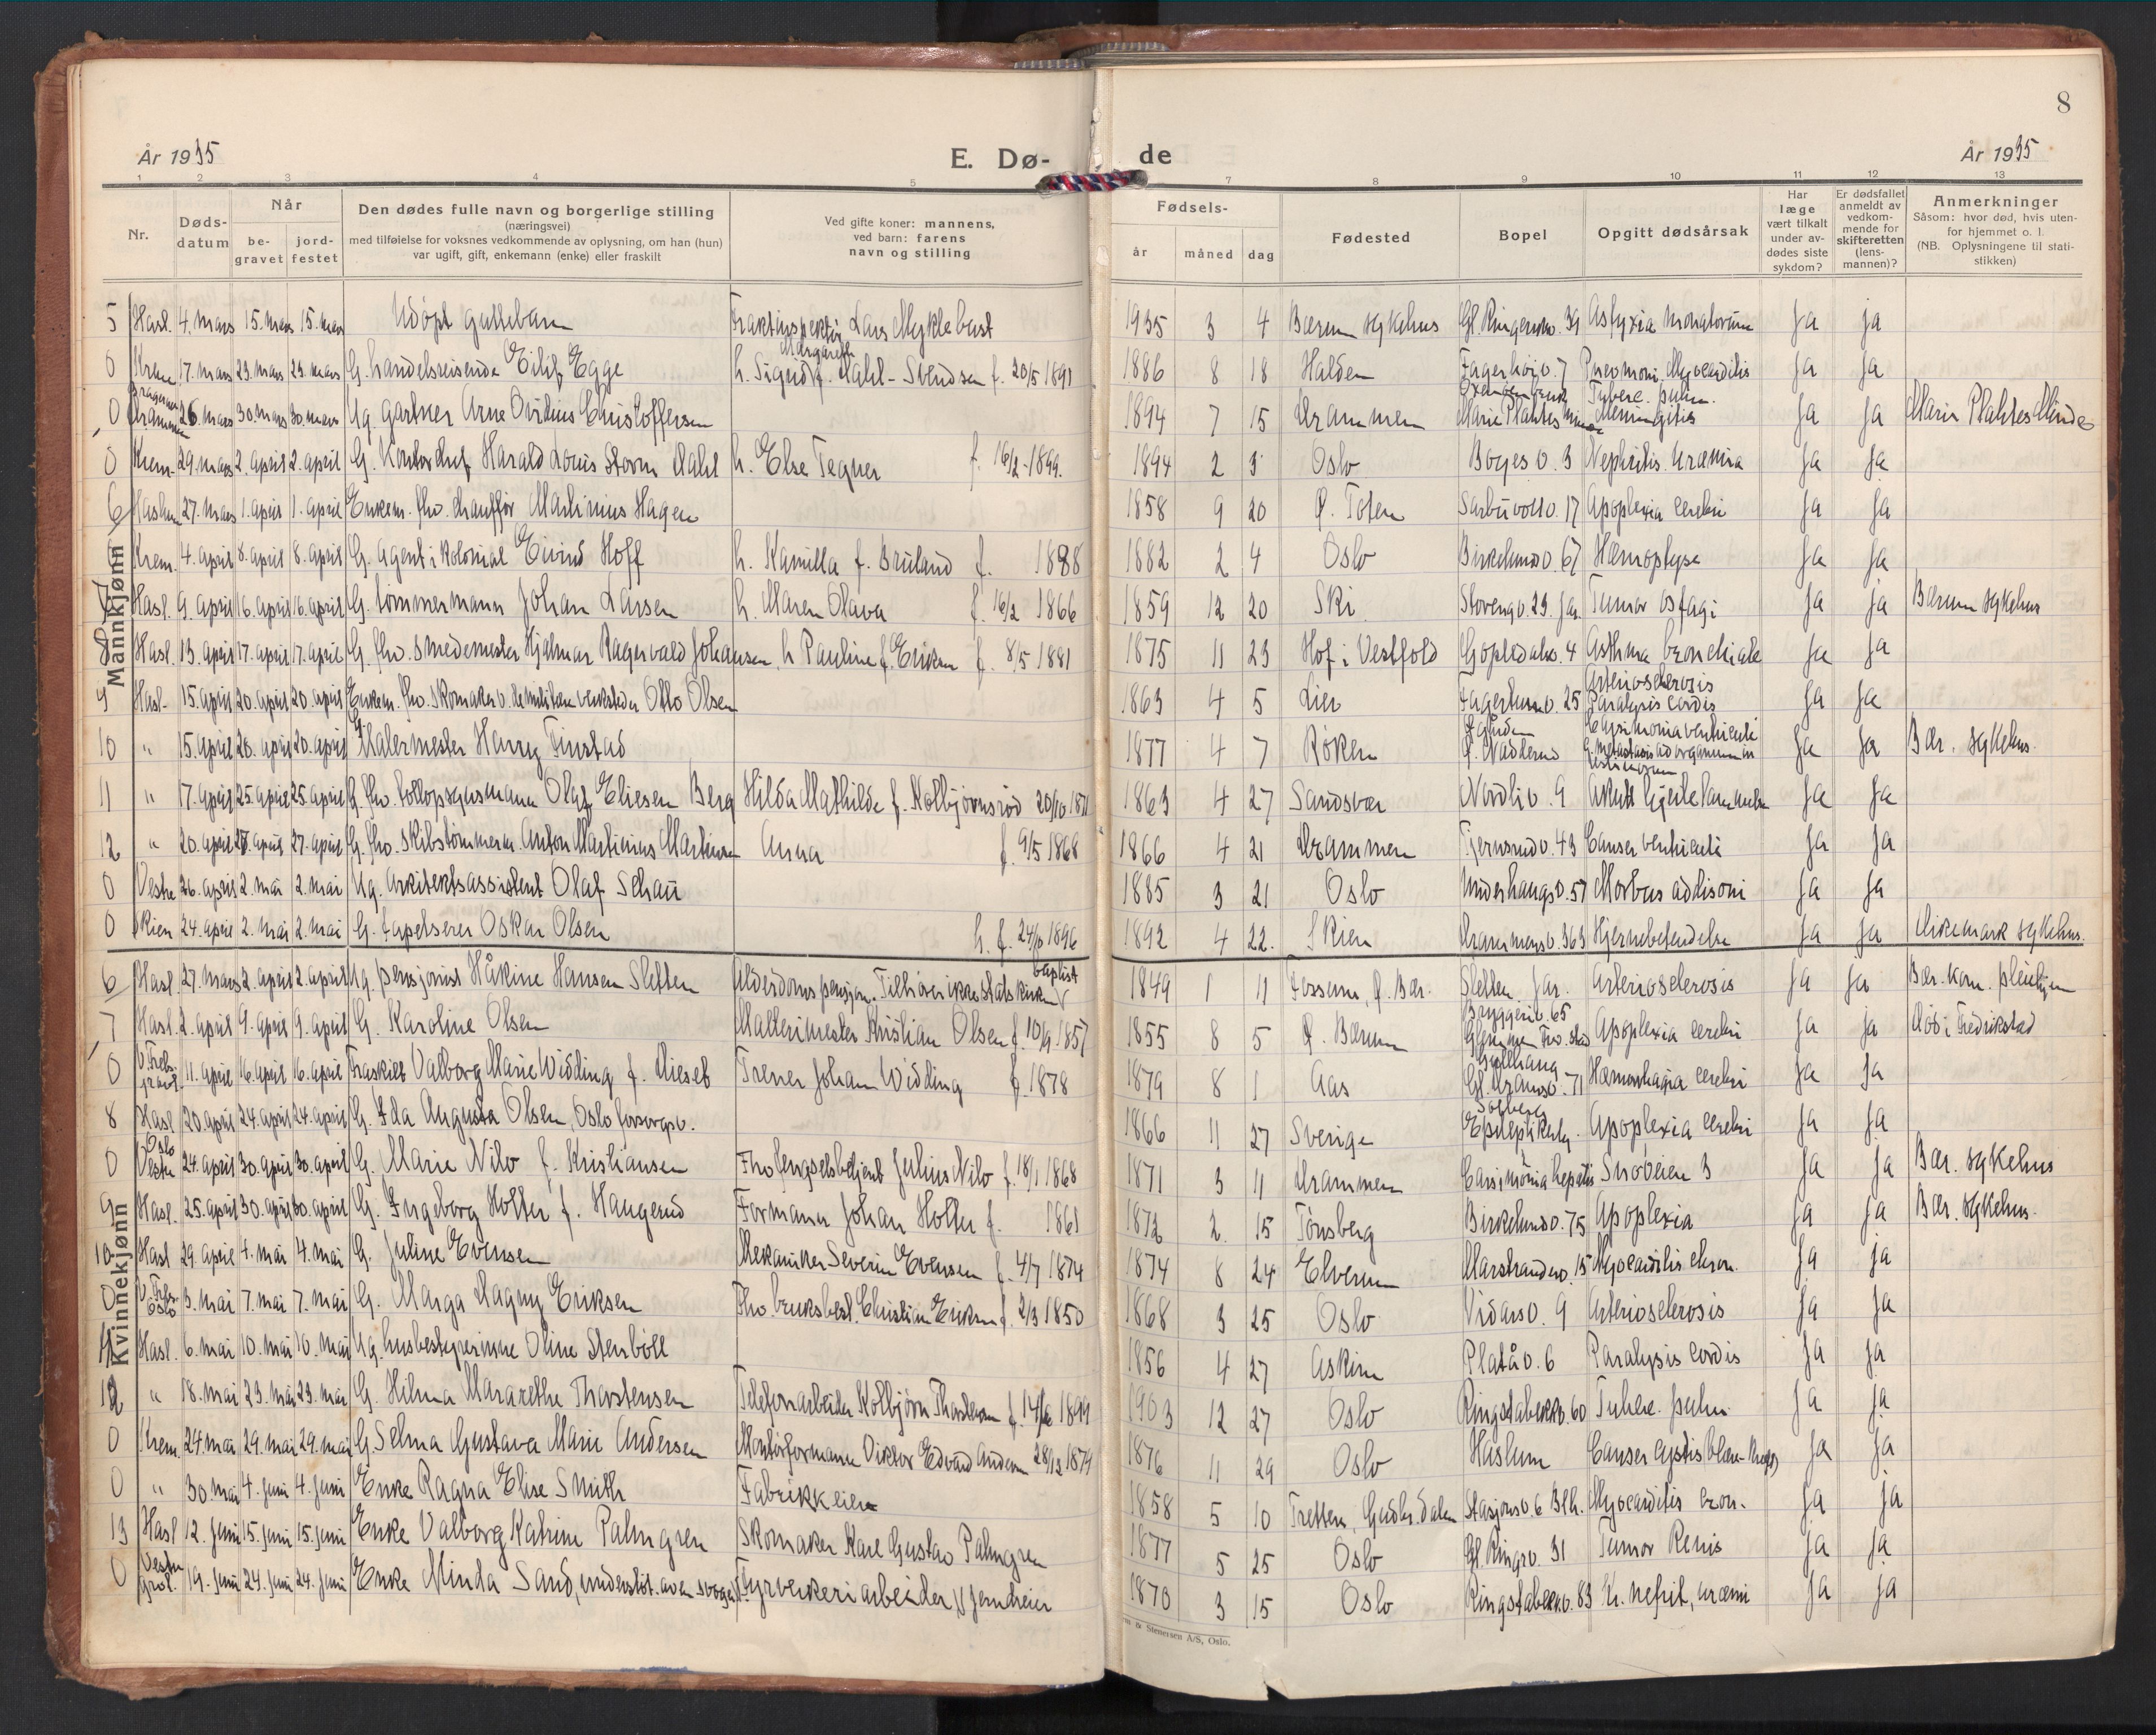 8
År 1935
E. Dø-
de
År 1935
1 2 3 4 5 7 8 9 10 11 12 13
Nr.
Døds-
datum
Når
be-
gravet
jord-
festet
Den dødes fulle navn og borgerlige stilling
(næringsvei)
med tilføielse for voksnes vedkommende av oplysning, om han (hun)
var ugift, gift, enkemann (enke) eller fraskilt
Ved gifte koner: mannens,
ved barn: farens
navn og stilling
Fødsels-
år måned dag
Fødested
Bopel
Opgitt dødsårsak
Har
læge
vært tilkalt
under av-
dødes siste
sykdom?
Er dødsfallet
anmeldt av
vedkom-
mende for
skifteretten
(lens-
mannen)?
Anmerkninger
Såsom: hvor død, hvis uten-
for hjemmet o. l.
(NB. Oplysningene til stati-
stikken)
Mannkjønn
5 Hasl. 4. mars 15. mars 15. mars Udøpt guttebarn Lars Myklebust 1935 3 4 Bærum sykehus Gl. Ringeriksv. 39 ja ja
0 Krem 17. mars 23. mars 23. mars G. handelsreisende Eilif Egge h. Sigrid Margareth f. Dahl-Svendsen f. 20/5 1891 1886 8 18 Halden Fagerhøiv. 7 Pneumoni, Myocarditis ja ja
0 Bragernes Drammen 26. mars 30. mars 30. mars Ug. gartner Arne Ovilius Christoffersen 1894 7 15 Drammen Marie Plahtes Minde Tuberc. pulm. Meningitis ja ja Marie Plahtes Minde
0 Krem. 29. mars 2. april 2. april G. Kontorchef Harald Louis Storm Dahl h. Else Tegner f. 16/2-1899. 1894 2 3 Oslo Boyes v. 3 Nephritis. Uræmia ja ja
6 Haslum 27. mars 1. april 1. april Enkem. fhv. chauffør Martinius Hagen 1858 9 20 Ø. Toten Sarbuvoll v. 17 Apoplexia cerebri ja ja
Krem. 4. april 8. april 8. april G. agent i kolonial Eivind Hoff h. Kamilla f. Bruland f. 1888 1882 2 4 Oslo Birkelundv. 67 Hæmoptyse ja ja
7 Hasl. 9. april 16. april 16. april G. tømmermann Johan Larsen h. Maren Olava f. 16/2 1866 1859 12 20 Ski Stovengv. 23. Jar. Tumor øsfagi ja ja Bærum sykehus
8 Hasl. 13. april 17. april 17. april G. fhv. smedemester Hjalmar Ragnvald Johansen, h Pauline f. Eriksen f. 8/5 1881 1875 11 23 Hof i Vestfold Gopledalsv. 4 Asthma bronchiale ja ja
9 Hasl. 15. april 20. april 20. april Enkem. fhv. Skomaker v. de militære verksteder Otto Olsen 1863 4 5 Lier Fagertunv. 25 Arteriosclerosis Paralysis cordis ja ja
10 " 15. april 20. april 20. april Malermester Harry Finstad 1877 4 7 Røken Ø. Nadderud ja ja Bær. sykehus.
11 " 17. april 25. april 25. april G. fhv. tollopsynsmann Olaf Eliesen Berg Hilda Mathilde f. Kolbjørnsrød 20/10 1871 1863 4 27 Sandsvær Nordliv. 9 Akutt hjertelammelse ja ja
12 " 20. april 27. april 27. april G. fhv. skibstømmerm. Anton Martinius Martinsen Anna f. 9/5 1868 1866 4 21 Drammen Tjernsrudv. 43 Canser ventriculi ja ja
0 Vestre 26. april 2. mai 2. mai Ug. Arkitektassistent Olaf Schau 1885 3 21 Oslo Underhaugsv. 57 Morbus addisoni ja ja
0 Skien 24. april 2. mai 2. mai G. tapetserer Oskar Olsen h. f. 24/10 1896 1892 4 22. Skien Drammensv. 363 Hjernebetendelse ja ja Dikemark sykehus.
Kvinnekjønn
6 Hasl. 27. mars 2. april 2. april Ug. pensjonist Håkine Hansen Sletten Alderdomspensjon. Tilhører ikke Statskirken (baptist) 1849 1 11 Fossum, Ø. Bær. Sletten Jar. Arteriosclerosis ja ja Bær. kom. pleiehjem
7 Hasl. 2. april 9. april 9. april G. Karoline Olsen Kristian Olsen f. 10/9 1857 1855 8 5 Ø. Bærum Bryggeriv. 65 Glemmen Fr.stad Apoplexia cerebri ja ja Død i Fredrikstad
0 11. april 16. april 16. april Fraskilt Valborg Marie Widding f. Dieseth Trener Johan Widding f. 1878 1879 8 1 Aas Gl. Dramsv. 71 Hæmorrhagia cerebri ja ja
8 Hasl 20. april 24. april 24. april G. Ida Augusta Olsen, Oslo forsorgsv. 1866 11 27 Sverige Solberg Epileptikerhj. Apoplexia cerebri ja ja
0 Oslo Vestre 24. april 30. april 30. april G. Marie Nilo f. Kristiansen Fhv fengselsbetjent Julius Nilo f. 18/1 1868 1871 3 11 Drammen Carsinomia hepatis Snøveien 3 ja ja Bær. sykehus
9 Hasl. 25. april 30. april 30. april G. Ingeborg Holter f. Haugerud Formann Johan Holter f. 1861 1872 2. 15 Tønsberg Birkelundv. 75 Apoplexia ja ja Bær. sykehus.
10 Hasl 29. april 4. mai 4. mai G. Juline Evensen Mekaniker Severin Evensen f. 4/7 1874 1874 8 24 Elverum Marstrandsv. 15 Myocarditis chron. ja ja
0 V. Fre. Oslo 3. mai 7. mai 7. mai G. Marga Dagny Eriksen Fhv. bruksbest. Christian Eriksen f. 2/3 1850 1868 3 25 Oslo Vidarsv. 9 Arteriosclerosis ja ja
11 Hasl. 6. mai 10. mai 10. mai Ug. husbestyrerinne Oline Stenbøll 1856 4 27 Askim Platåv. 6 Paralysis cordis ja ja
12 " 18. mai 23. mai 23. mai G. Hilma Mararethe Thorstensen Telefonarbeider Kolbjørn Thorstensen f. 1899 1903 12 27 Oslo Ringstabekkv. 60 Tuberc. pulm. ja ja
0 Krem. 24. mai 29. mai 29. mai G. Selma Gustava Marie Andersen Montørformann Viktor Edvard Andersen 28/12 1874 1876 11 29 Oslo Haslum Canser cystis (blære-kreft) ja ja
0 " 30. mai 4. juni 4. juni Enke Ragna Elise Smith Fabrikkeier 1858 5 10 Tretten, Gudbr.dalen Stasjonsv. 6 Blh. Myocarditis cron. ja ja
13 Hasl 12. juni 15. juni 15. juni Enke Valborg Katrine Palmgren Skomaker Karl Gustav Palmgren 1877 5 25 Oslo Gl. Ringv. 31 Tumor Renis ja ja
0 Vestre grøl. 19. juni 24. juni 24. juni Enke Minda Sand, underst. av en svoger Fyrverkeriarbeider, jerndreier 1870 3 15 Oslo Ringstabekkv. 83 Kr. nefrit, uræmi ja ja
& Stenersen A/S, Oslo.